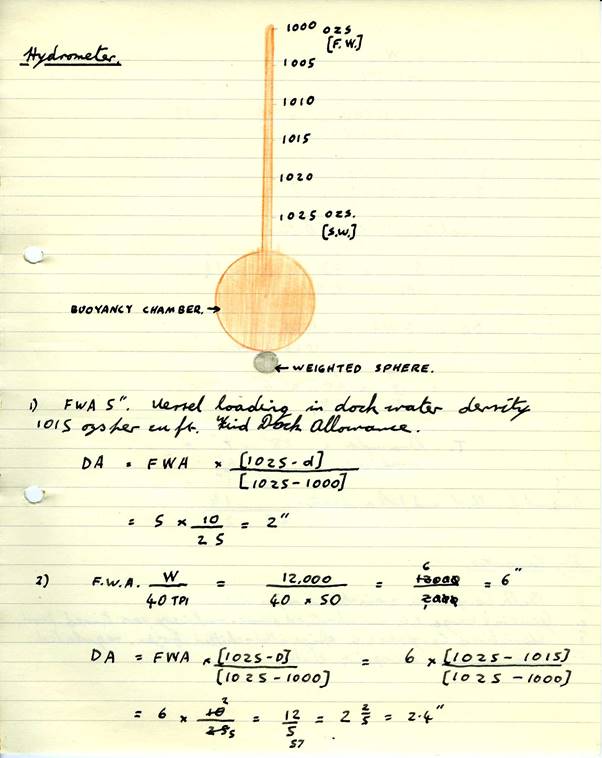 Hydrometer.
1000 OZS
[F.W.]
1005
1010
1015
1020
1025 OZS.
[S.W.]
BUOYANCY CHAMBER. →
← WEIGHTED SPHERE.
1) FWA 5". Vessel loading in dock water density
1015 ozs per cu ft. Find Dock Allowance.
DA = FWA × [1025-d] / [1025-1000]
= 5 × 10 / 25 = 2"
2) F.W.A. W / 40 TPI = 12,000 / 40 × 50 = 6 12000 / 1 2000 = 6"
DA = FWA × [1025-D] / [1025-1000] = 6 × [1025-1015] / [1025-1000]
= 6 × 10 2 / 25 5 = 12 / 5 = 2 2/5 = 2.4"
57